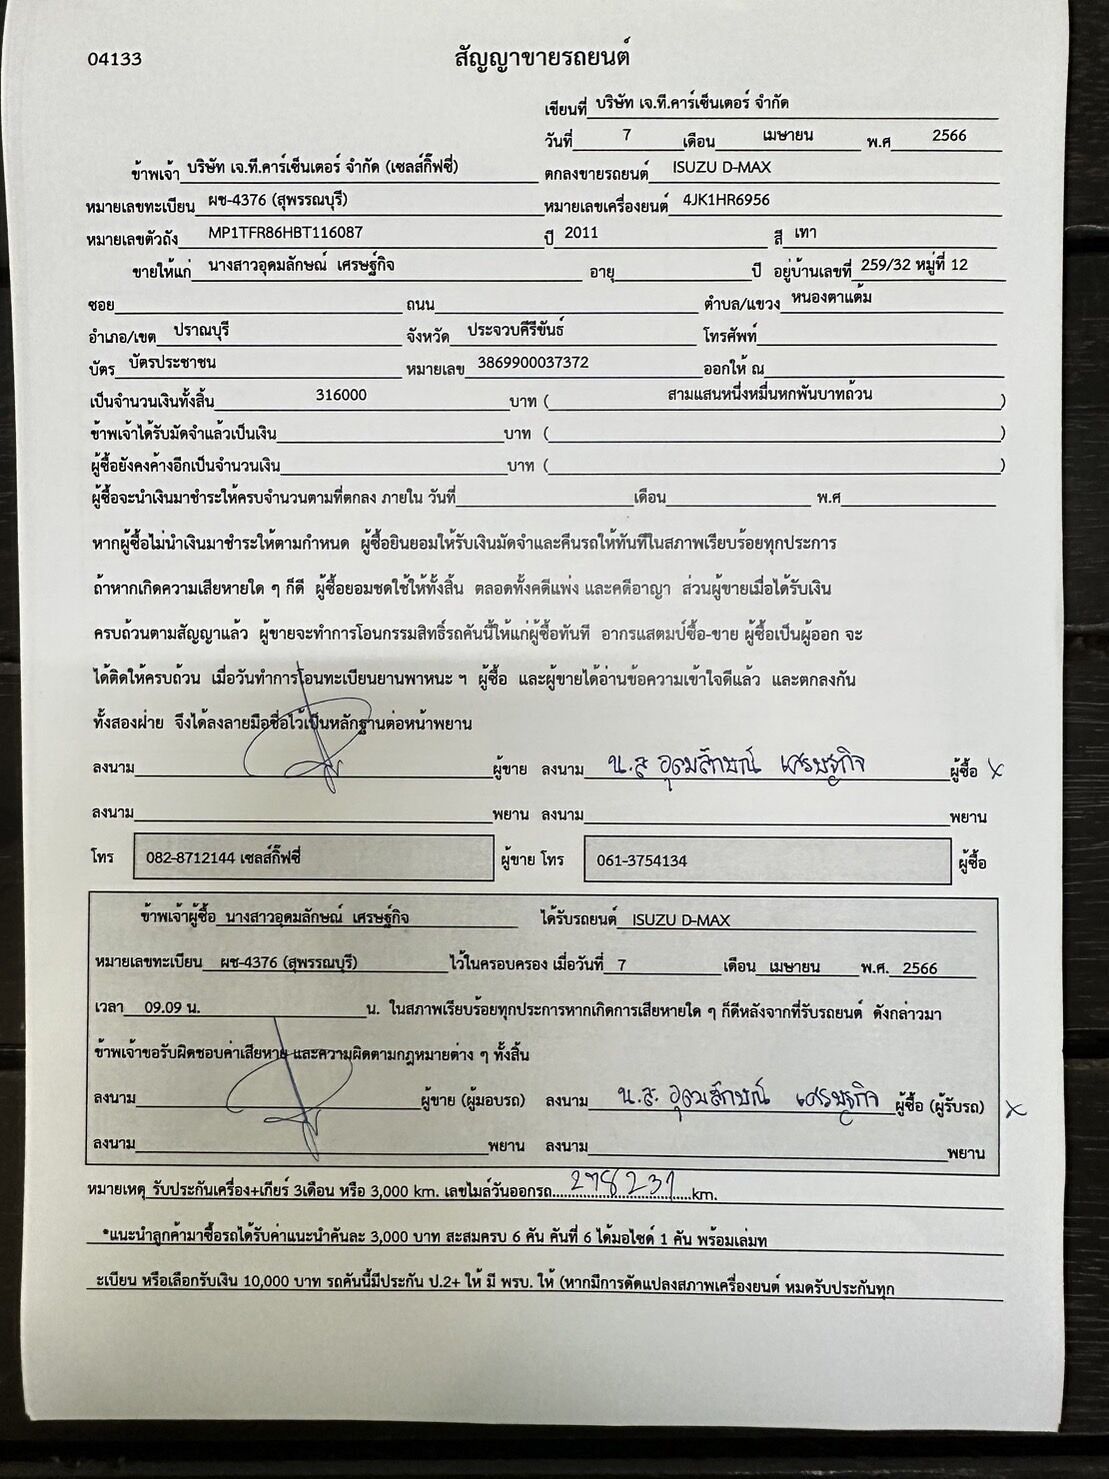 04133
สัญญาขายรถยนต์
เขียนที่ บริษัท เจ.ที.คาร์เซ็นเตอร์ จำกัด
วันที่ 7 เดือน เมษายน พ.ศ 2566
ข้าพเจ้า บริษัท เจ.ที.คาร์เซ็นเตอร์ จำกัด (เซลส์กิ๊ฟซี่) ตกลงขายรถยนต์ ISUZU D-MAX
หมายเลขทะเบียน ผช-4376 (สุพรรณบุรี) หมายเลขเครื่องยนต์ 4JK1HR6956
หมายเลขตัวถัง MP1TFR86HBT116087 ปี 2011 สี เทา
ขายให้แก่ นางสาวอุดมลักษณ์ เศรษฐ์กิจ อายุ ปี อยู่บ้านเลขที่ 259/32 หมู่ที่ 12
ซอย ถนน ตำบล/แขวง หนองตาแต้ม
อำเภอ/เขต ปราณบุรี จังหวัด ประจวบคีรีขันธ์ โทรศัพท์
บัตร บัตรประชาชน หมายเลข 3869900037372 ออกให้ ณ
เป็นจำนวนเงินทั้งสิ้น 316000 บาท ( สามแสนหนึ่งหมื่นหกพันบาทถ้วน )
ข้าพเจ้าได้รับมัดจำแล้วเป็นเงิน บาท ( )
ผู้ซื้อยังคงค้างอีกเป็นจำนวนเงิน บาท ( )
ผู้ซื้อจะนำเงินมาชำระให้ครบจำนวนตามที่ตกลง ภายใน วันที่ เดือน พ.ศ
หากผู้ซื้อไม่นำเงินมาชำระให้ตามกำหนด ผู้ซื้อยินยอมให้รับเงินมัดจำและคืนรถให้ทันทีในสภาพเรียบร้อยทุกประการ
ถ้าหากเกิดความเสียหายใด ๆ ก็ดี ผู้ซื้อยอมชดใช้ให้ทั้งสิ้น ตลอดทั้งคดีแพ่ง และคดีอาญา ส่วนผู้ขายเมื่อได้รับเงิน
ครบถ้วนตามสัญญาแล้ว ผู้ขายจะทำการโอนกรรมสิทธิ์รถคันนี้ให้แก่ผู้ซื้อทันที อากรแสตมป์ซื้อ-ขาย ผู้ซื้อเป็นผู้ออก จะ
ได้ติดให้ครบถ้วน เมื่อวันทำการโอนทะเบียนยานพาหนะ ฯ ผู้ซื้อ และผู้ขายได้อ่านข้อความเข้าใจดีแล้ว และตกลงกัน
ทั้งสองฝ่าย จึงได้ลงลายมือชื่อไว้เป็นหลักฐานต่อหน้าพยาน
ลงนาม ผู้ขาย ลงนาม น.ส อุดมลักษณ์ เศรษฐกิจ ผู้ซื้อ x
ลงนาม พยาน ลงนาม พยาน
โทร 082-8712144 เซลส์กิ๊ฟซี่ ผู้ขาย โทร 061-3754134 ผู้ซื้อ
ข้าพเจ้าผู้ซื้อ นางสาวอุดมลักษณ์ เศรษฐ์กิจ ได้รับรถยนต์ ISUZU D-MAX
หมายเลขทะเบียน ผช-4376 (สุพรรณบุรี) ไว้ในครอบครอง เมื่อวันที่ 7 เดือน เมษายน พ.ศ. 2566
เวลา 09.09 น. น. ในสภาพเรียบร้อยทุกประการหากเกิดการเสียหายใด ๆ ก็ดีหลังจากที่รับรถยนต์ ดังกล่าวมา
ข้าพเจ้าขอรับผิดชอบค่าเสียหาย และความผิดตามกฎหมายต่าง ๆ ทั้งสิ้น
ลงนาม ผู้ขาย (ผู้มอบรถ) ลงนาม น.ส. อุดมลักษณ์ เศรษฐกิจ ผู้ซื้อ (ผู้รับรถ) x
ลงนาม พยาน ลงนาม พยาน
หมายเหตุ รับประกันเครื่อง+เกียร์ 3เดือน หรือ 3,000 km. เลขไมล์วันออกรถ 278237 km.
*แนะนำลูกค้ามาซื้อรถได้รับค่าแนะนำคันละ 3,000 บาท สะสมครบ 6 คัน คันที่ 6 ได้มอไซด์ 1 คัน พร้อมเล่มท
ะเบียน หรือเลือกรับเงิน 10,000 บาท รถคันนี้มีประกัน ป.2+ ให้ มี พรบ. ให้ (หากมีการดัดแปลงสภาพเครื่องยนต์ หมดรับประกันทุก